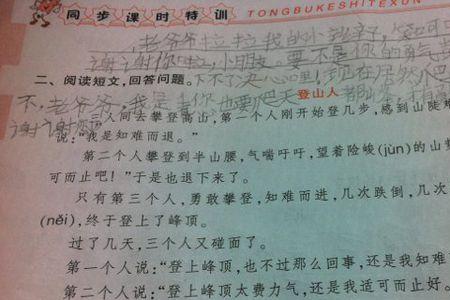 同步课时特训 TONGBUKESHITEXUN
,老爷爷拉拉我的小
谢谢你啦,小朋友。要不是你的勇气
二、阅读短文,回答问题。下不了决心
不,老爷爷,我是看你也要爬天
登山人
谢谢你
三人同去攀登高山,第一个人刚开始登几步,感到山陡难
说:“我是知难而退。”
第二个人攀登到半山腰,气喘吁吁,望着险峻(jùn)的山
可而止吧!”于是也退下来了。
只有第三个人,勇敢攀登,知难而进,几次跌倒,几次
(něi),终于登上了峰顶。
过了几天,三个人又碰面了。
第一个人说:“登上峰顶,也不过那么回事,还是我知难
第二个人说:“登上峰顶太费力气,还是我适可而止好。